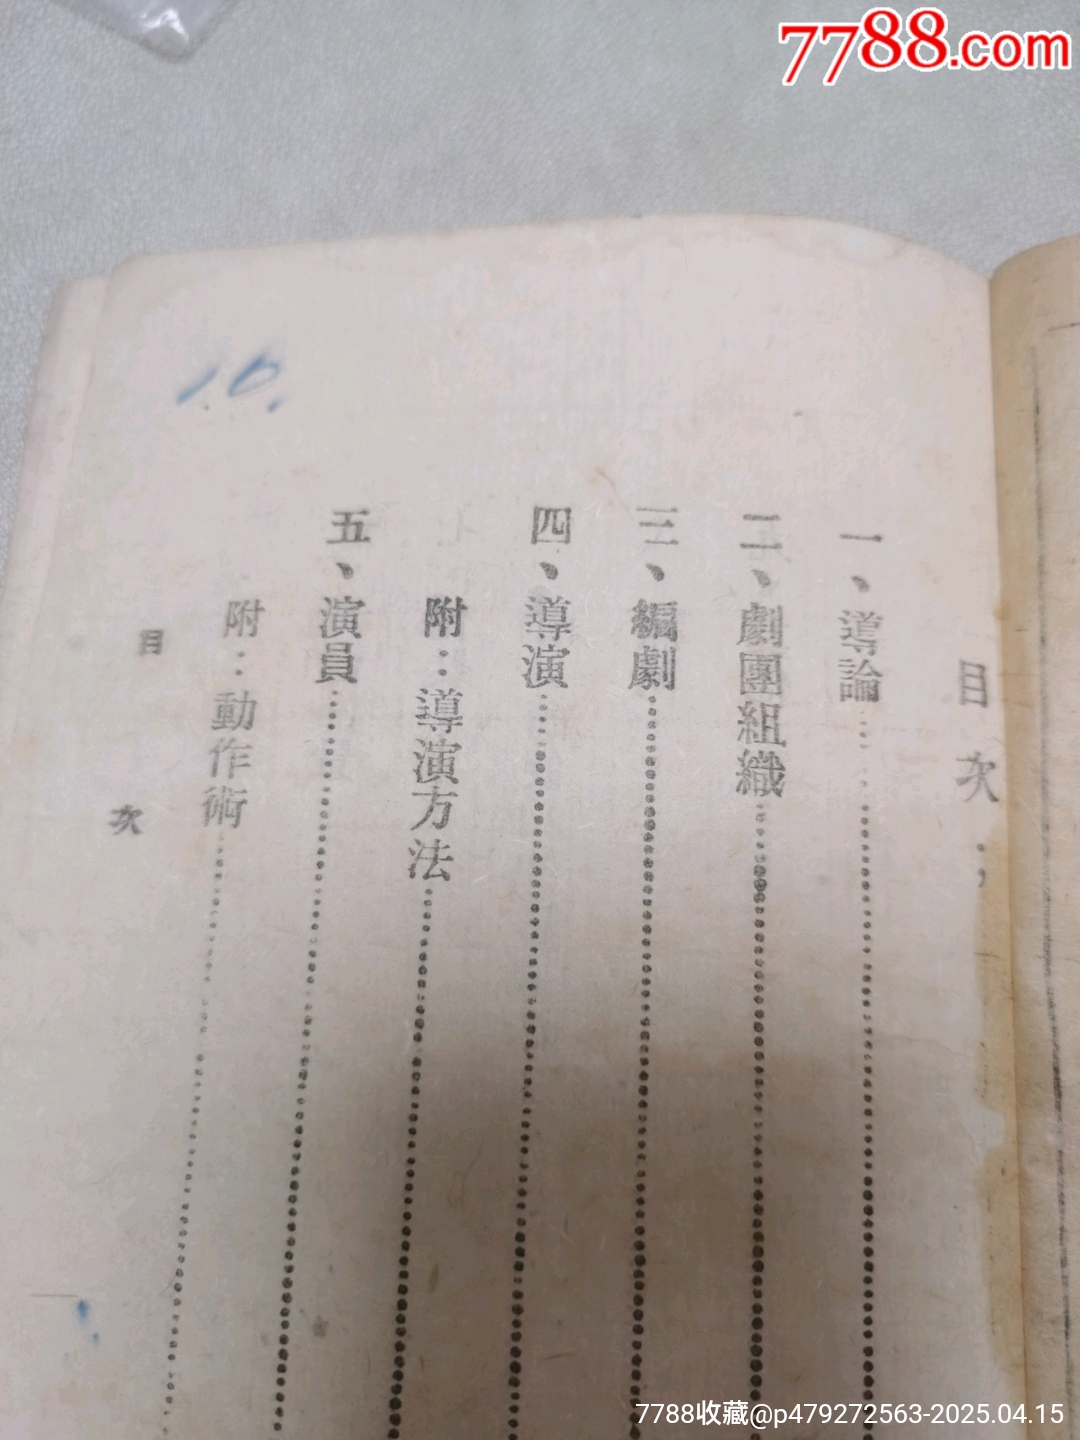 7788.com
目次
一、導論
二、劇團組織
三、編劇
四、導演
附：導演方法
五、演員
附：動作術
目次
10.
7788收藏@p479272563-2025.04.15